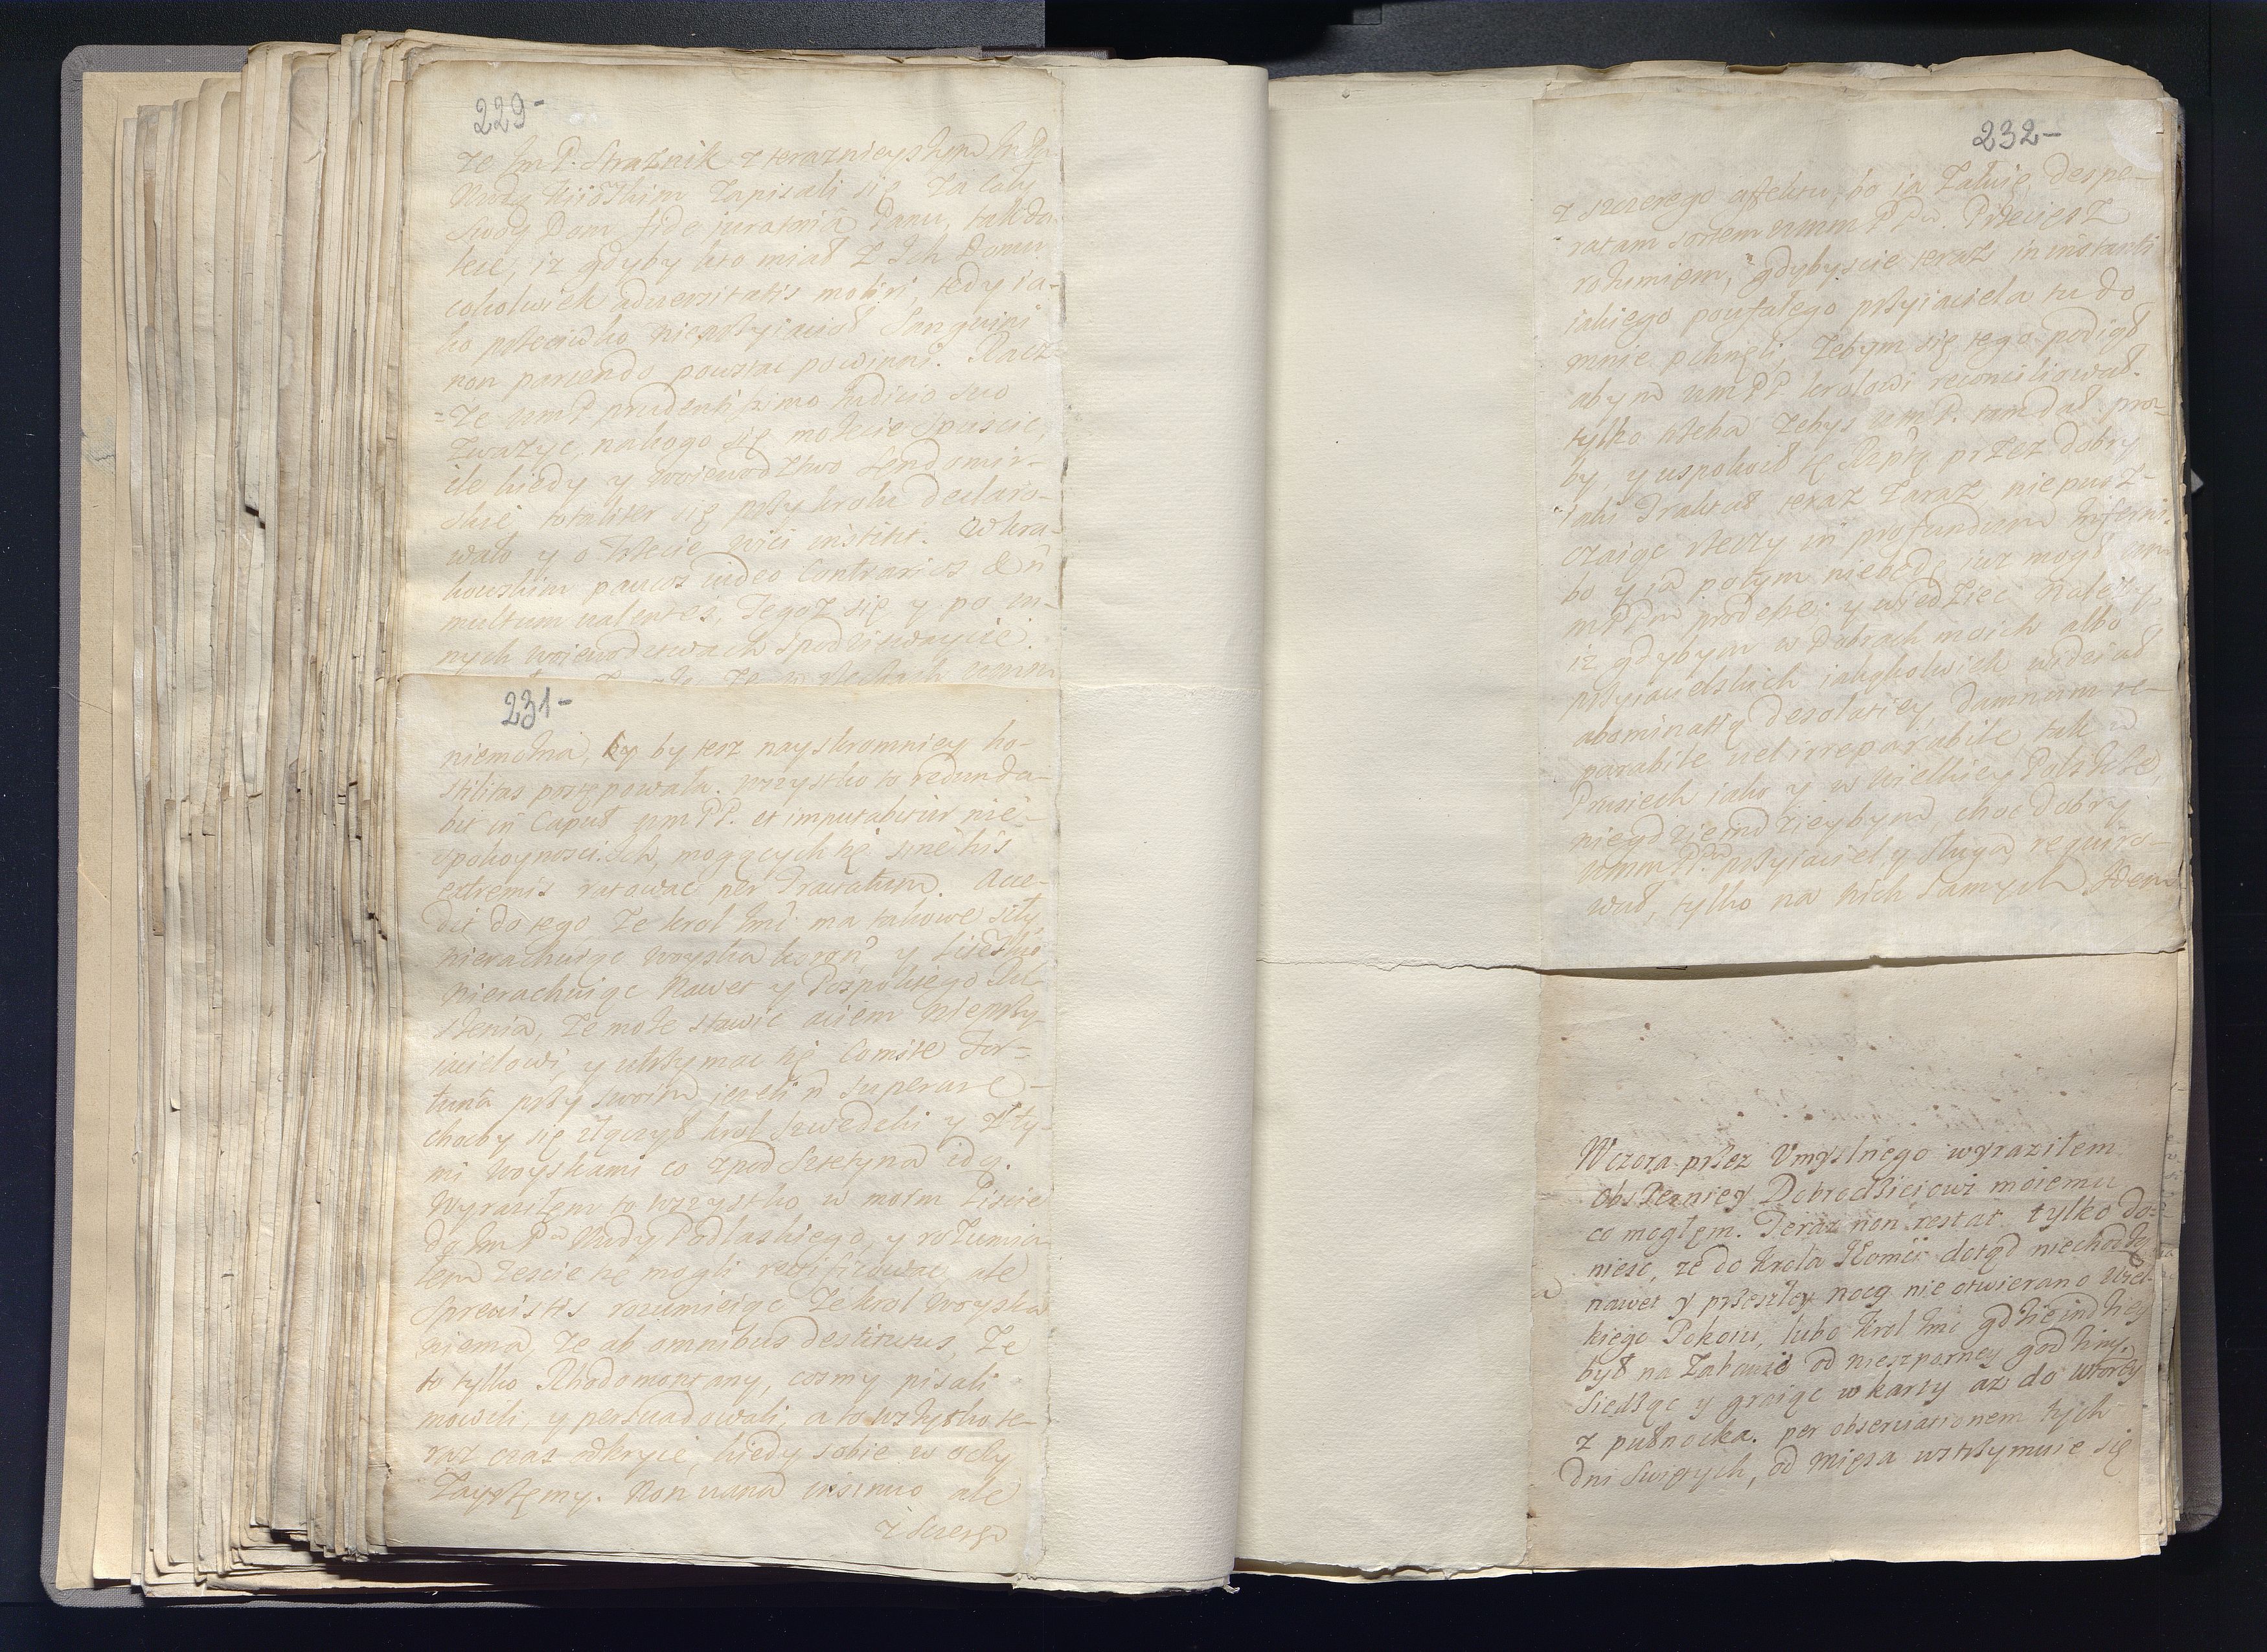 229-
ze Im P. Straznik z teraznieyszym Im Pa
Wdą Kiiowskim zapisali się za cały
swoy Dom fide iuratoria Panu, tak da-
lece, iz gdyby kto miał z Ich Domu
cokolwiek adversitatis moliri, tedy ia-
ko przeciwko nieprzyiacioł Sanguini
non parcendo powstac powinni. Racz-
=ze Wm P. prudentissimo Iudicio suo
zwazyc, na kogo się mozecie spuscic,
ile kiedy y Woiewodztwo Sendomir-
skie totaliter się przy krolu declaro-
wało y o trzecie wici institit. W kra-
kowskim paucos video Contrarios & n
multum valentes, Tegoz się y po in-
nych Woiewodztwach spodziewaycie.
231-
niemozna, by by tesz nayskromniey ho-
stilitas postępowała. Wszystko to redunda-
bit in Caput Wm PP. et imputabitur nie-
spokoynosci Ich, mogących się sine his
extremis ratowac per Tractatum. Acce-
dit do tego ze krol Imc ma takowe siły
nierachuiąc Woyska koron y Litewskie
nierachuiąc Nawet y Pospolitego Ru-
szenia, ze moze stawic aciem Nieprzy-
iacielowi, y utrzymac się Comite For-
tuna przy swoim, iezeli n superare
chocby się złączył krol Szwedzki y z ty-
mi Woyskami co zpod Sztetyna idą.
Wyraziłem to wszystko w moim Liscie
do Im Pa Wwdy Podlaskiego, y rozumia-
łem zescie się mogli rectificowac, ale
sprevistis rozumieiąc ze krol Woyska
niema, ze ab omnibus destitutus, ze
to tylko Rhodomontany, cosmy pisali
mowili, y persuadowali, a to wszystko te-
raz czas odkryie, kiedy sobie w oczy
zayrzemy. Non vana insinuo ale
z szczergo
232-
z szczerego affektu, bo ia załuię despe-
ratam sortem Wmm PPw. Przeciesz
rozumiem, gdybyscie teraz in instanti
iakiego poufałego przyiaciela tu do
mnie pchnęli, zebym się tego podiął
abym Wm PP. krolowi reconciliował.
tylko trzeba zebys Wm P. sam dał pro-
by, y uspokoił tę Rzptę przez dobry
iaki Traktat teraz zaraz, niepusz-
czaiąc rzeczy in profundum Inferni.
bo y ia potym niebędę iuz mogł W
m PPm prodesse. y wiedziec nalezy
iz gdybym w Dobrach moich albo
przyiacielskich iakychkolwiek widział
abominatią desolatiey, damnum re-
parabile vel irreparabile, tak w
Prusiech iako y w Wielkiey Polszcze,
niegdzieindzieybym, choc dobry
Wmm PPw przyiaciel y sługa, requiro-
wał, tylko na nich samych Idem
Wczora przez Umyslnego wyraziłem
obszerniey Dobrodzieiowi moiemu
co mogłem. Teraz non restat tylko do-
niesc, ze do Krola IEomci dotąd niechodzą
nawet y przeszłey nocy nie otwierano Wszel-
kiego Pokoiu, lubo Krol Imc gdzieindziey
był na Zabawie od nieszporney godziny,
siedząc y graiąc w karty az do wtorey
z pułnocka. per observationem tych
dni swiętych, od mięsa wstrzymuie się